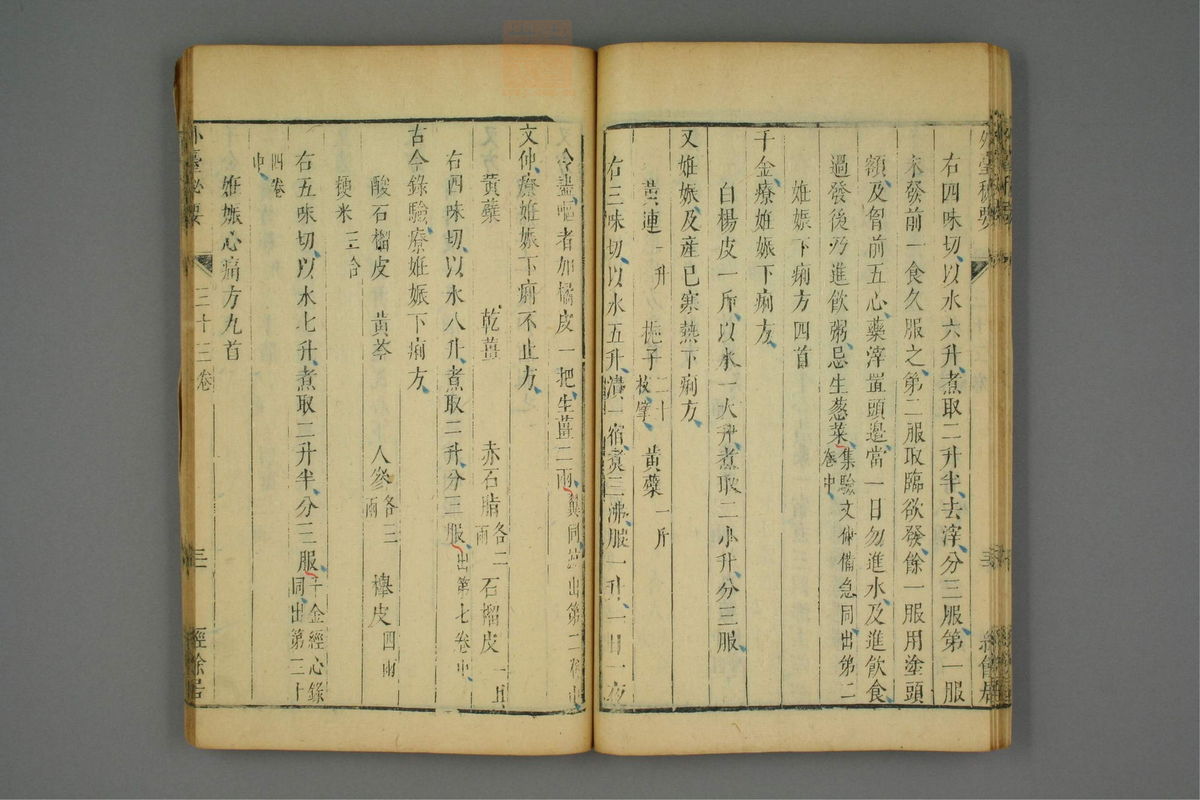 右四味切以水六升煮取二升半去滓分三服第一服
未發前一食久服之第二服取臨欲發餘一服用塗頭
額及智前五心藥滓置頭邊當一日勿進水及進飲食
過發後乃進飲粥忌生葱菜集驗文仲備急同出第二
卷中
姙娠下痢方四首
千金療姙娠下痢方
白楊皮一斤以水一大升煮取二小升分三服
又姙娠及産已寒熱下痢方
黃連一升 梔子二十枚擘 黃蘗一斤
右三味切以水五升漬一宿煮三沸服一升一日一夜
令盡嘔者加橘皮一把生薑二兩集同出第二卷中
文仲療姙娠下痢不止方
黃蘗 乾薑 赤石脂各二兩 石榴皮一具
右四味切以水八升煮取二升分三服出第七卷中
古今錄驗療姙娠下痢方
酸石榴皮 黃芩 人參各三兩 櫸皮四兩
粳米三合
右五味切以水七升煮取二升半分三服千金經心錄
同出第三十
四卷
中
姙娠心痛方九首
外臺秘要 三十三卷 經餘居